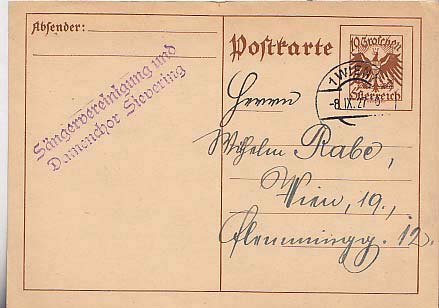 Absender:
Sängervereinigung und
Damenchor Sievering
Postkarte
10 Groschen
Österreich
1 WIEN
-8.IX.27
Herrn
Wilhelm Rabe,
Wien, 19.,
Flemmingg. 12.